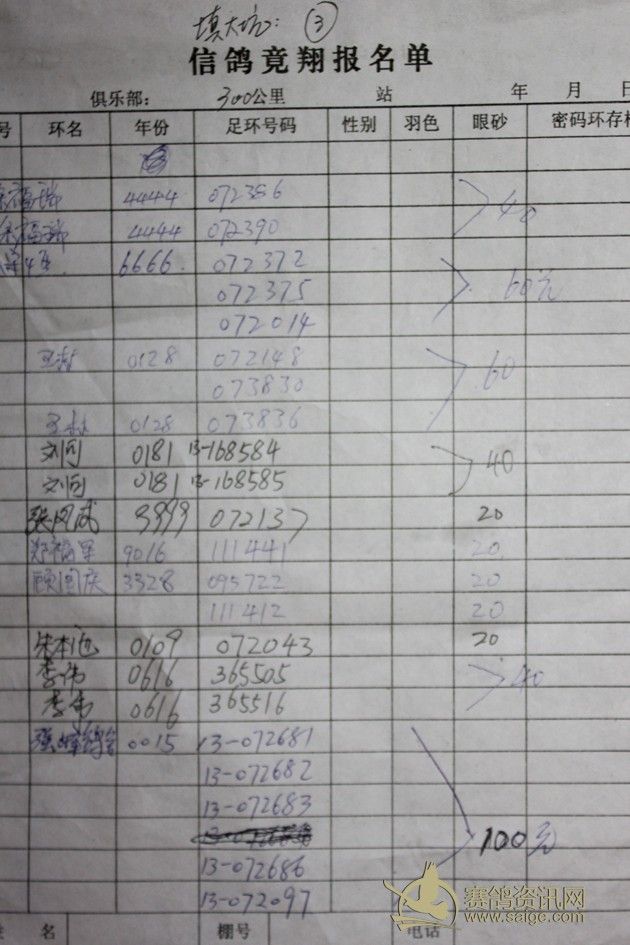 填大坑: ③
信鸽竟翔报名单
俱乐部: 300公里 站 年 月 日
号 环名 年份 足环号码 性别 羽色 眼砂 密码环存根
4444 072386
4444 072390 40
6666 072372
072375 60元
072014
0128 072148
073830 60
0128 073836
刘同 0181 13-168584 40
刘同 0181 13-168585
张风成 9999 072137 20
郑福军 9016 111441 20
顾国庆 3328 095722 20
111412 20
朱本池 0109 072043 20
李伟 0616 365505 40
李伟 0616 365516
0015 13-072681
13-072682
13-072683
100元
13-072686
13-072097
姓 名 棚号 电话
赛鸽资讯网
www.saige.com